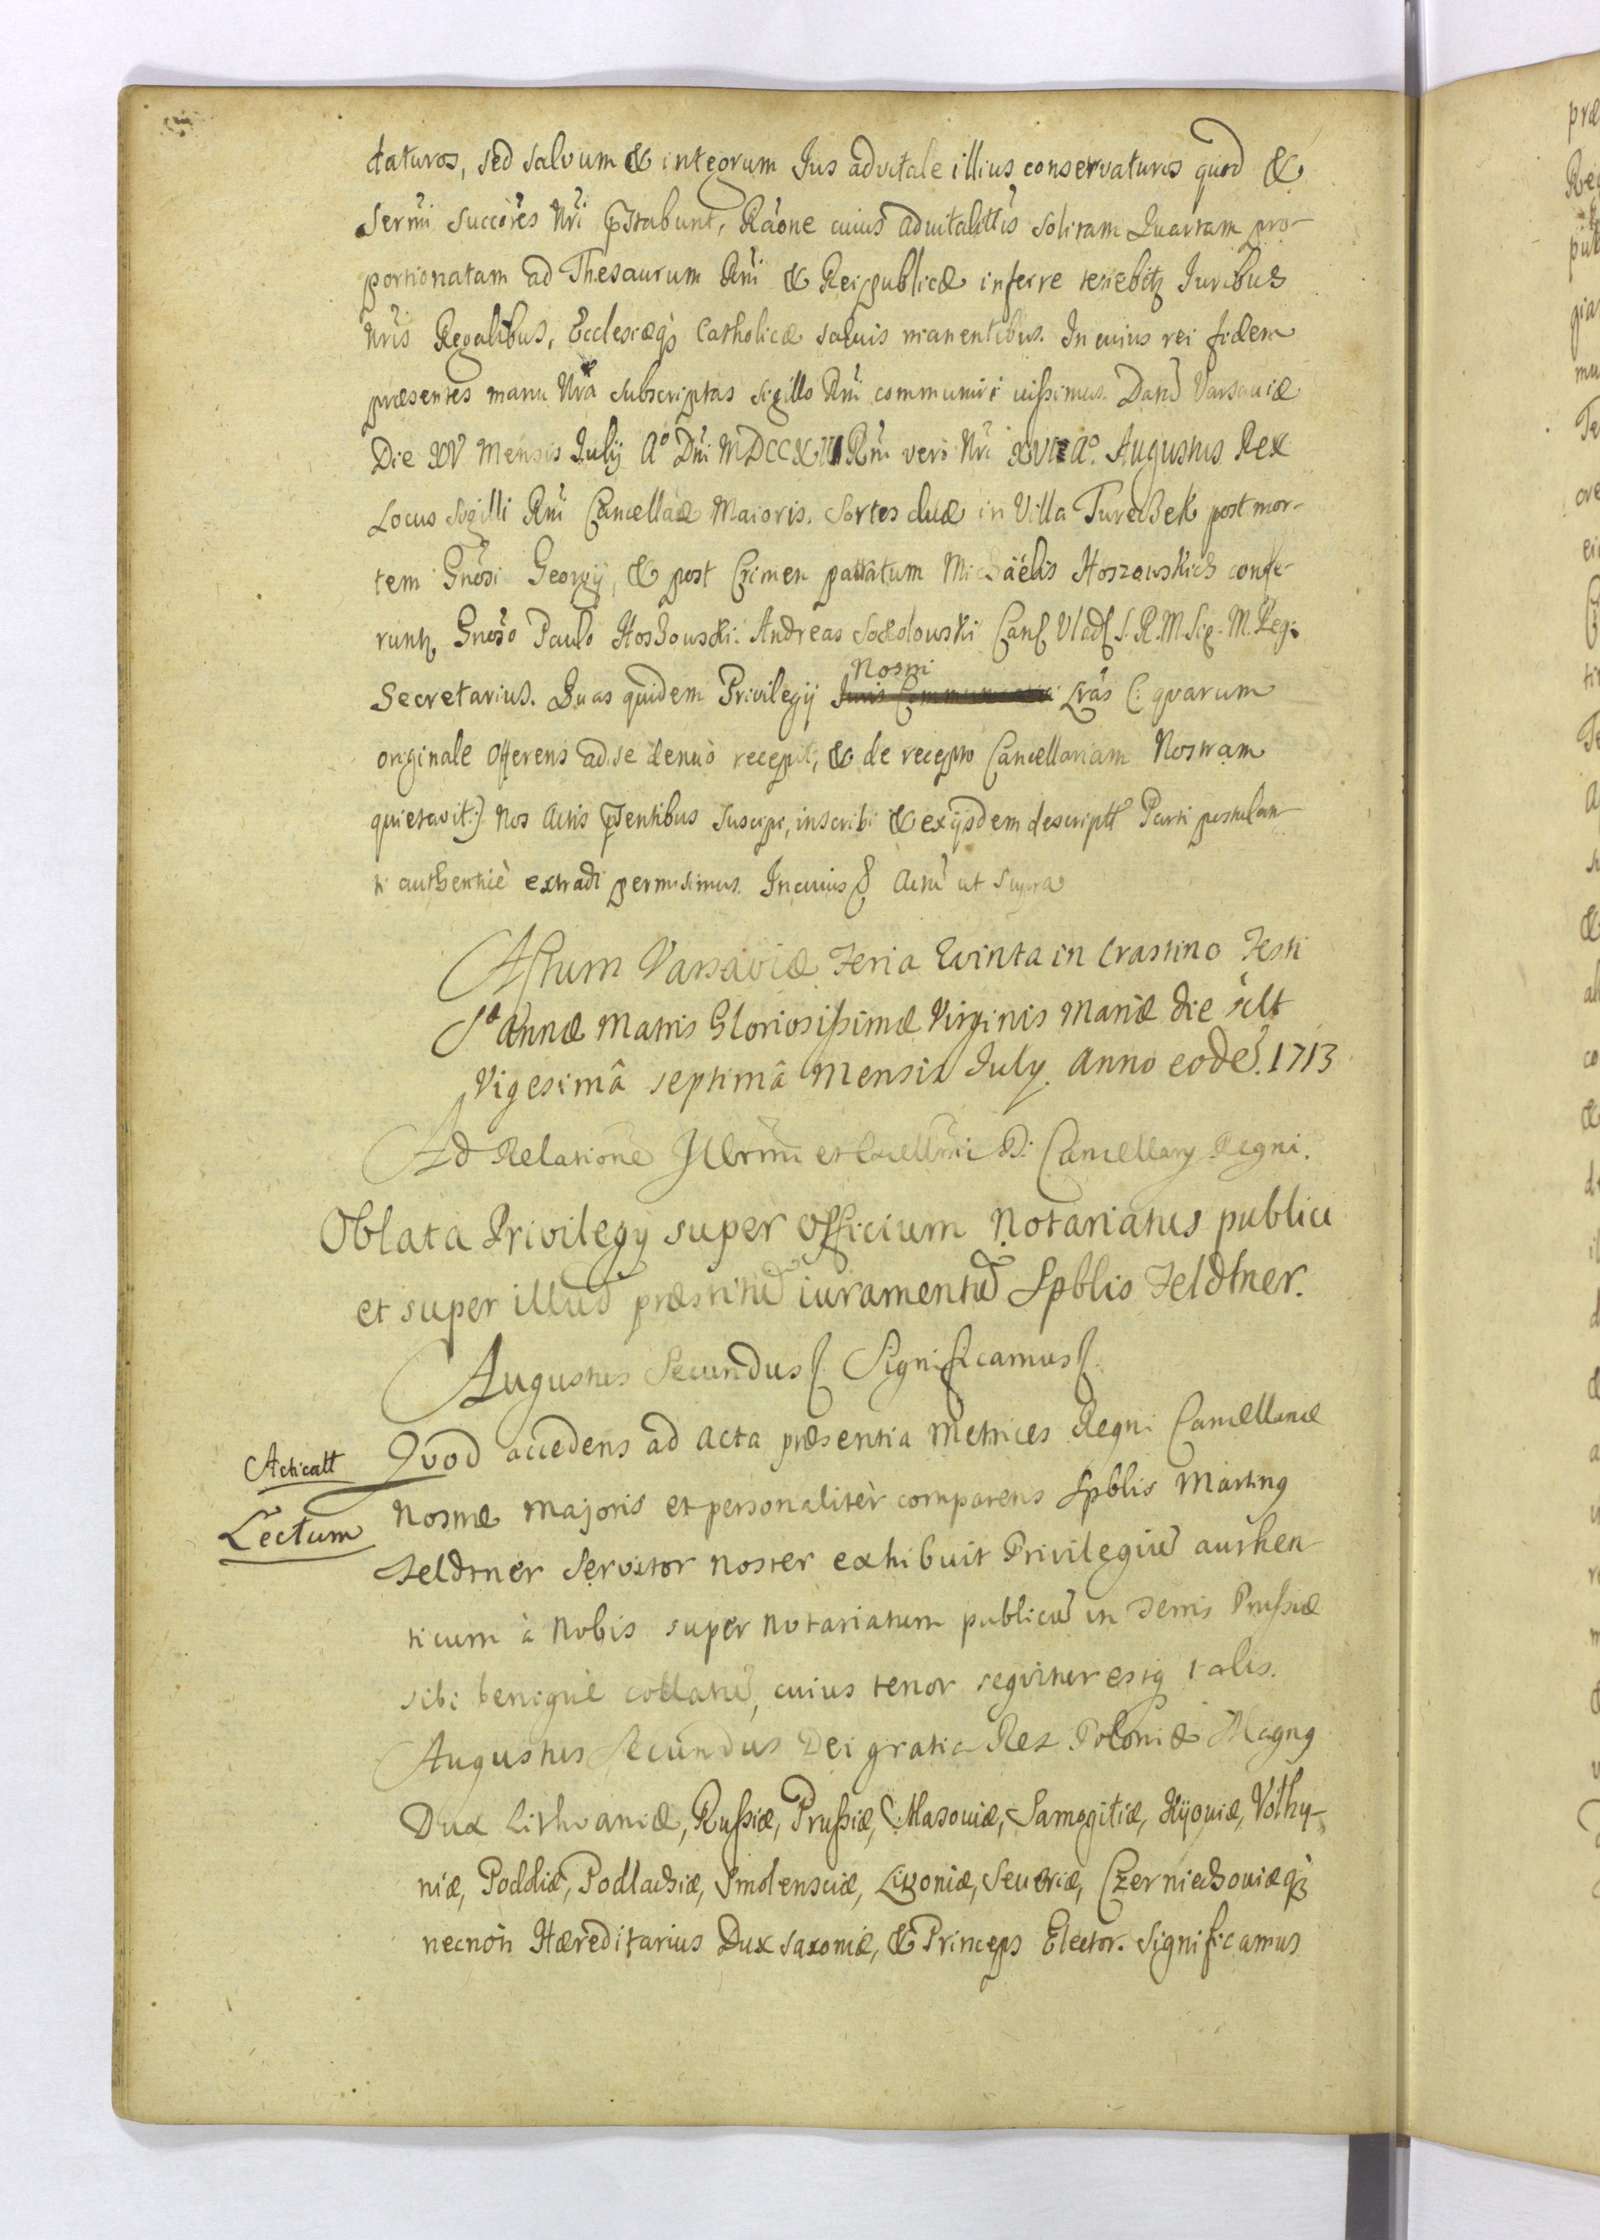 daturos, sed salvum & integrum Jus advitale illius conservaturos quod &
Sermi Succores Nri pstabunt, Raone cuius advitalittis solitam Quartam pro-
portionatam ad Thesaurum Rni & Reipublicæ inferre tenebitz Juribus
Nris Regalibus, Ecclesiæqz Catholicæ salvis manentibus. In cuius rei fidem
præsentes manu Nra subscriptas sigillo Rni communiri iussimus. Dat Varsaviæ
Die XV Mensis July Ao Dni MDCCX Rni vero Nri XVI Ao. Augustus Rex
Locus Sigilli Rni Cancellaæ Maioris. Sortes duæ in Villa Tureczek post mor-
tem Gnosi Georgij, & post Crimen patratum Michaëlis Hoszowskich confe-
runtz Gnoso Paulo Hoszowski. Andreas Sokolowski Canc Vlad S. R. M. Sig. M. Reg:
Secretarius. Quas quidem Privilegij Nostri Lras (: quarum
originale Offerens ad se denuò recepit, & de recepto Cancellariam Nostram
quietavit:) Nos Actis psentibus suscipi, inscribi & ex ijsdem descriptt Parti postulan-
ti authenticè extradi permisimus. In cuius Actu ut supra
Actum Varsaviæ Feria Quinta in Crastino Festi
Sæ Annæ Matris Gloriosissimæ Virginis Mariæ die silt
Vigesimâ septimâ Mensis July. Anno eode. 1713
Ad Relatione Illrmi et Excellmi D: Cancellary Regni.
Oblata Privilegy super Officium Notariatus publici
et super illud præstitu iuramentu Spblis Feldtner.
Augustus Secundus Significamus
Acticatt
Quod accedens ad Acta præsentia Metrices Regni Cancellariæ
Lectum
Nostræ Majoris et personalitèr comparens Spblis Martinq
Feldtner Servitor Noster exhibuit Privilegiu authen-
ticum à Nobis super Notariatum publicu in Terris Prussiæ
sibi benignè collatu, cuius tenor sequitur estq talis.
Augustus Secundus Dei gratia Rex Poloniæ Magnq
Dux Lithvaniæ, Russiæ, Prussiæ, Masoviæ, Samogitiæ, Kijoviæ, Volhy-
niæ, Podoliæ, Podlachiæ, Smolensciæ, Livoniæ, Severiæ, Czerniechoviæqz
necnòn Hæreditarius Dux Saxoniæ, & Princeps Elector. Significamus